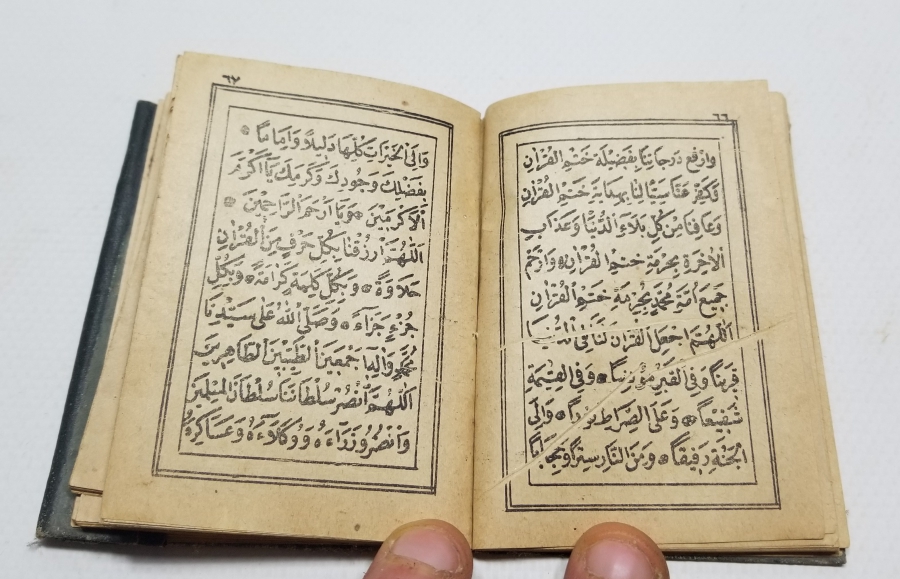 ٦٦
وارفع درجاتنا بفضيلة ختم القرآن
وكفر عنا سيئاتنا بهداية ختم القرآن
وعافنا من كل بلاء الدنيا وعذاب
الآخرة بحرمة ختم القرآن وارحم
جميع أمة محمد بحرمة ختم القرآن
اللهم اجعل القرآن لنا في الدنيا
قريناً وفي القبر مونساً وفي القيمة
شفيعاً وعلى الصراط نوراً والى
الجنة رفيقاً ومن النار ستراً وحجاباً
٦٧
والى الخيرات كلها دليلاً واماماً
بفضلك وجودك وكرمك يا أكرم
الاكرمين ويا ارحم الراحمين
اللهم ارزقنا بكل حرف من القرآن
حلاوة وبكل كلمة كرامة وبكل
جزء جزاء وصلى الله على سيدنا
محمد واله اجمعين الطيبين الطاهرين
اللهم انصر سلطاننا سلطان المسلمين
وانصر وزراءه ووكلاءه وعساكره